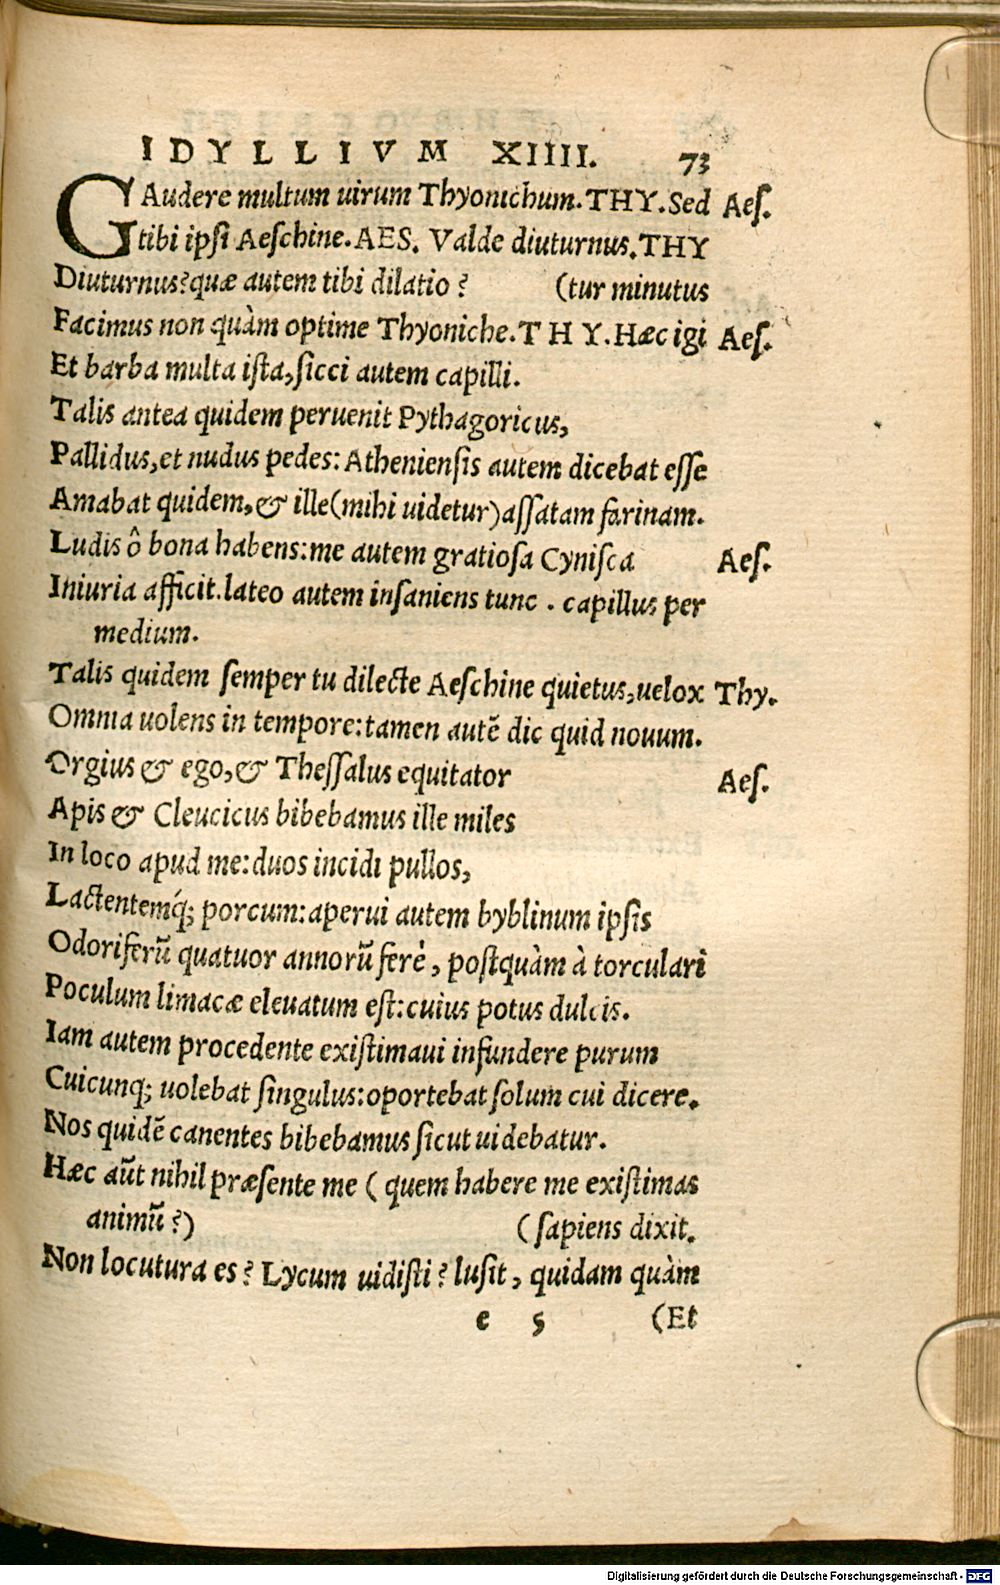 IDYLLIVM XIIII. 73
GAudere multum uirum Thyonichum. THY. Sed Aeſ.
tibi ipſi Aeſchine. AES. Valde diuturnus. THY
Diuturnus? quæ autem tibi dilatio? (tur minutus
Facimus non quàm optime Thyoniche. THY. Hæc igi Aeſ.
Et barba multa iſta, ſicci autem capilli.
Talis antea quidem peruenit Pythagoricus,
Pallidus, et nudus pedes: Athenienſis autem dicebat eſſe
Amabat quidem, & ille (mihi uidetur) aſſatam farinam.
Ludis ô bona habens: me autem gratioſa Cyniſca Aeſ.
Iniuria afficit. lateo autem inſaniens tunc. capillus per
medium.
Talis quidem ſemper tu dilecte Aeſchine quietus, uelox Thy.
Omnia uolens in tempore: tamen autẽ dic quid nouum.
Orgius & ego, & Theſſalus equitator Aeſ.
Apis & Cleucicus bibebamus ille miles
In loco apud me: duos incidi pullos,
Lactentemq́; porcum: aperui autem byblinum ipſis
Odoriferũ quatuor annorũ ferè, poſtquàm à torculari
Poculum limacæ eleuatum eſt: cuius potus dulcis.
Iam autem procedente exiſtimaui infundere purum
Cuicunq; uolebat ſingulus: oportebat ſolum cui dicere.
Nos quidẽ canentes bibebamus ſicut uidebatur.
Hæc aũt nihil præſente me (quem habere me exiſtimas
animũ?) (ſapiens dixit.
Non locutura es? Lycum uidiſti? luſit, quidam quàm
e 5 (Et
Digitalisierung gefördert durch die Deutsche Forschungsgemeinschaft - DFG